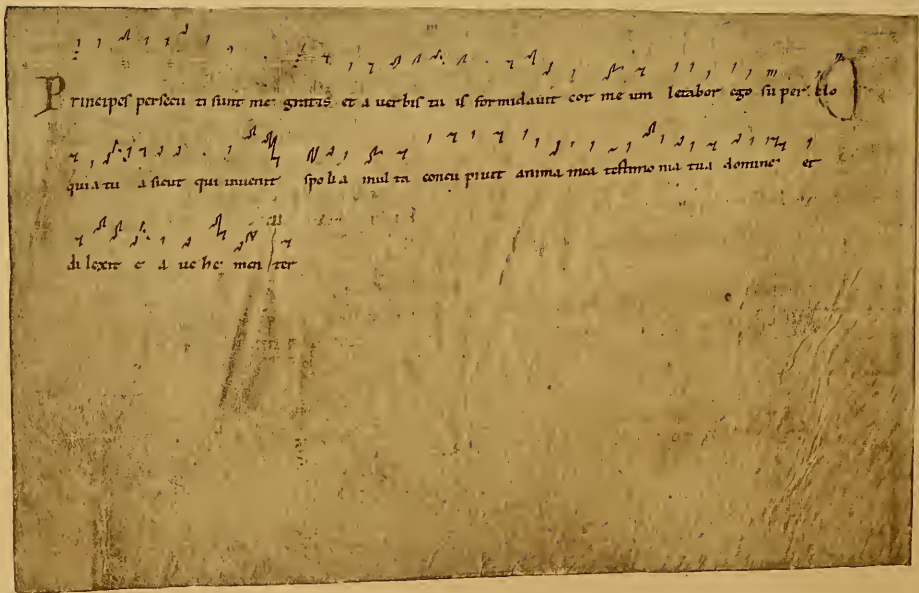 Principes persecu ti sunt me gratis et a uerbis tu is formidauit cor me um letabor ego super elo
quia tu a sicut qui inuenit spolia mul ta concu piuit anima mea testimo nia tua domine et
di lexit e a ue he men ter